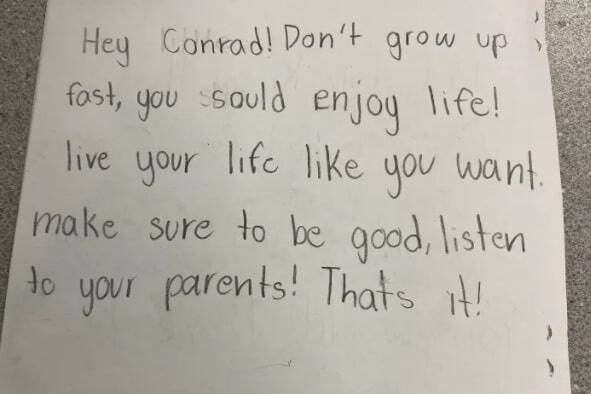 Hey Conrad! Don't grow up
fast, you sould enjoy life!
live your life like you want.
make sure to be good, listen
to your parents! Thats it!